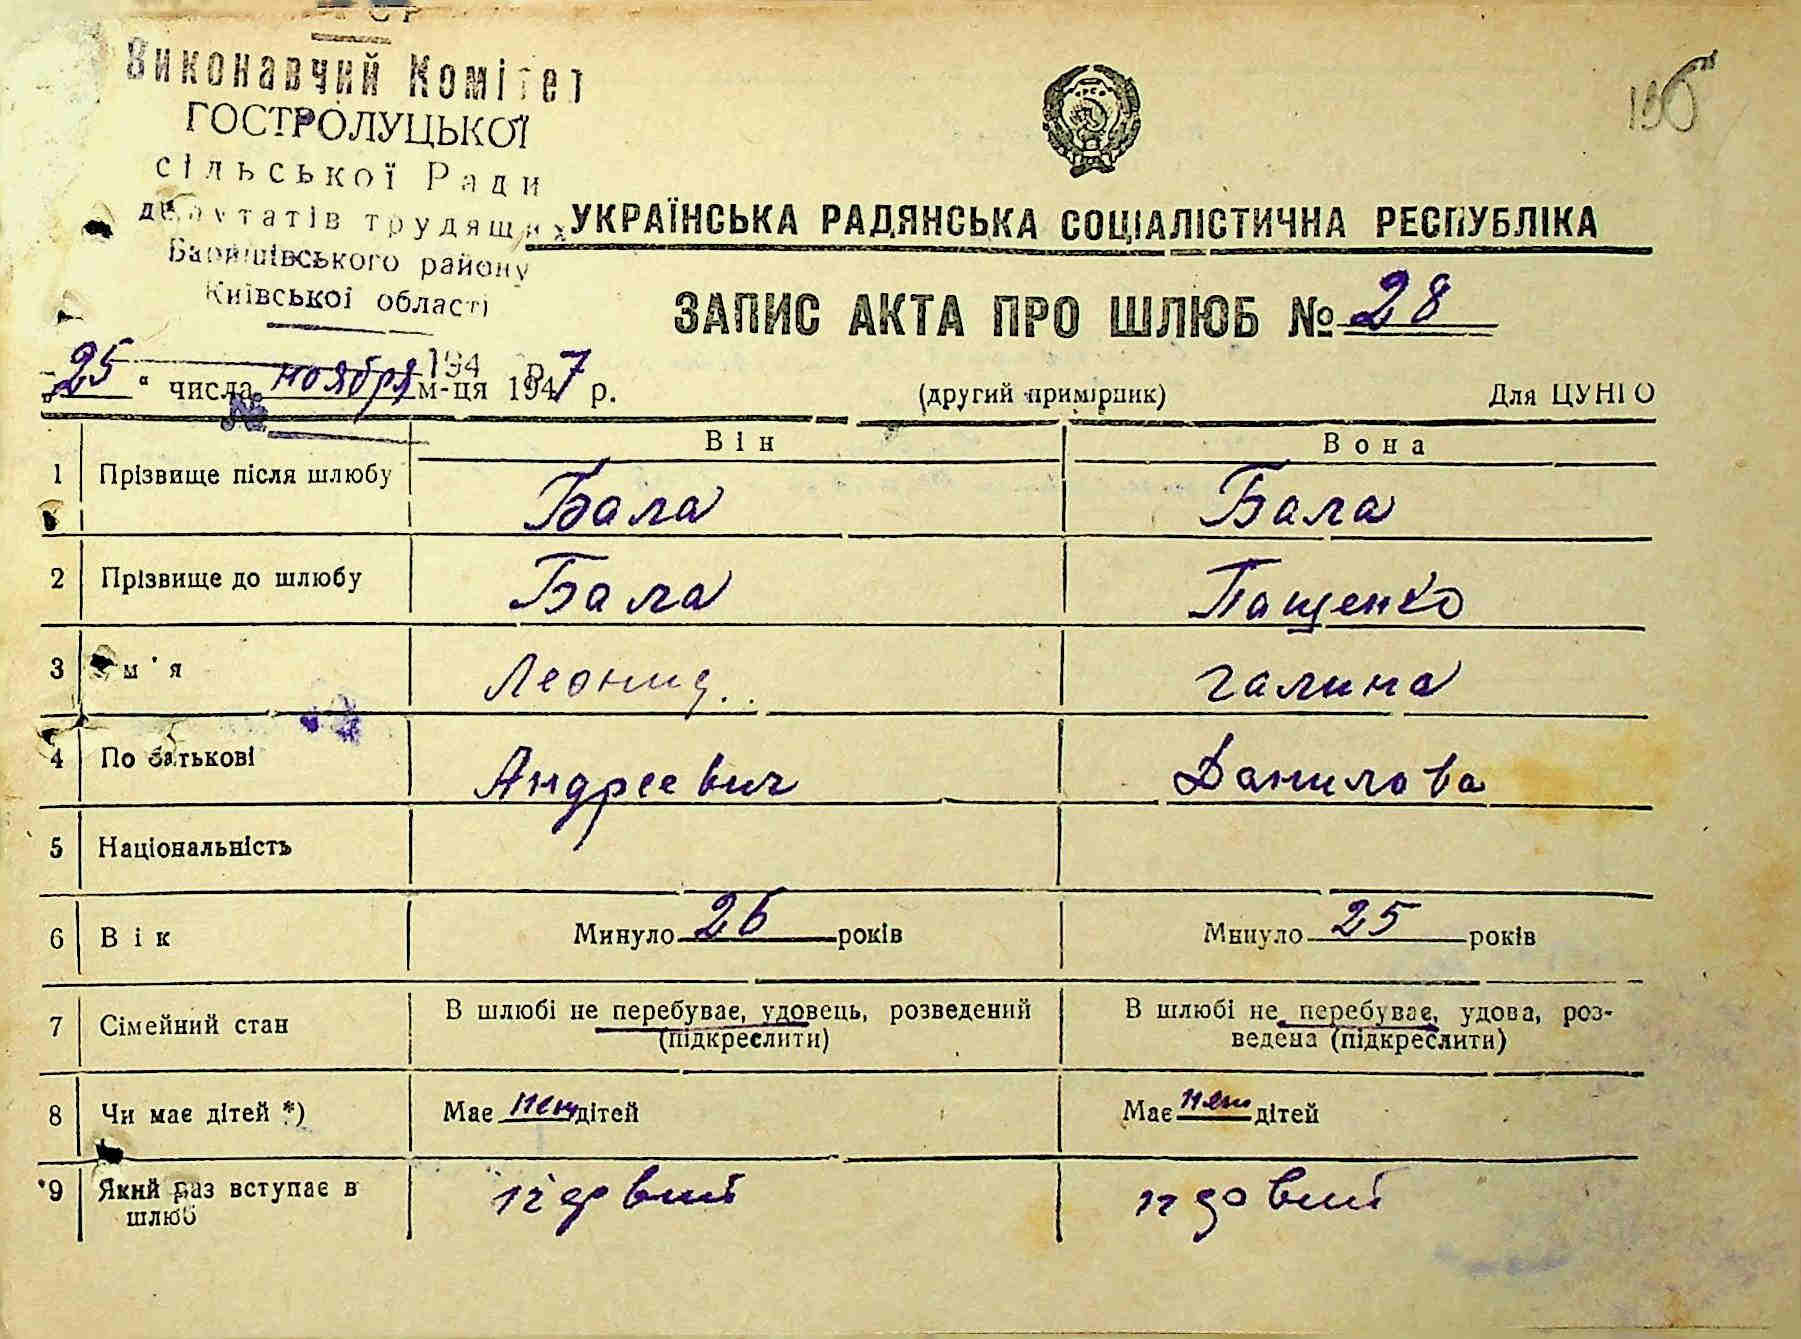 Виконавчий Комітет
ГОСТРОЛУЦЬКОЇ
сільської Ради
депутатів трудящих
Баришівського району
Київської області
194 р.
№
УКРАЇНСЬКА РАДЯНСЬКА СОЦІАЛІСТИЧНА РЕСПУБЛІКА
ЗАПИС АКТА ПРО ШЛЮБ № 28
„25“ числа ноября м-ця 1947 р. (другий примірник) Для ЦУНГО
Він Вона
1 Прізвище після шлюбу Бала Бала
2 Прізвище до шлюбу Бала Пащенко
3 м'я Леонид Галина
4 По батькові Андреевич Данилова
5 Національність
6 Вік Минуло 26 років Минуло 25 років
7 Сімейний стан В шлюбі не перебуває, удовець, розведений В шлюбі не перебуває, удова, роз-
(підкреслити) ведена (підкреслити)
8 Чи має дітей *) Має нет дітей Має нет дітей
9 Який раз вступає в
шлюб